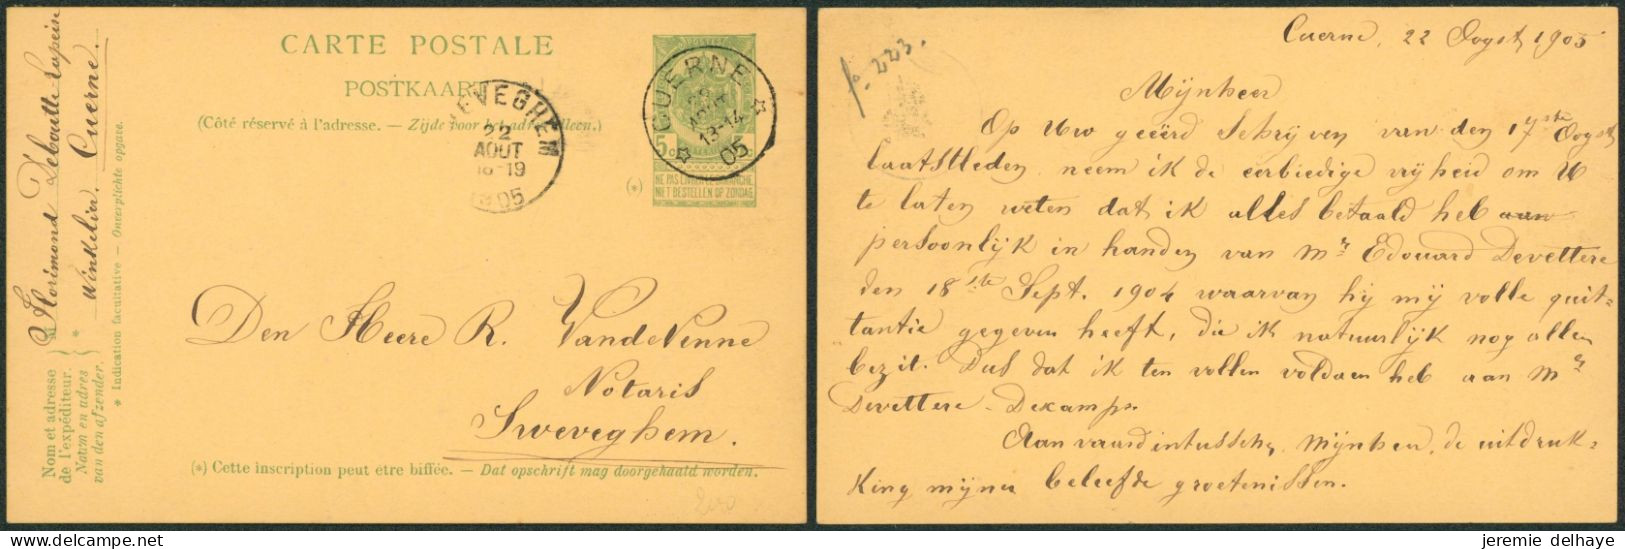 CARTE POSTALE
POSTKAART
(Côté réservé à l'adresse. — Zijde voor het adres alleen.)
CUERNE
22
AOUT
13-14
05
5c
NE PAS LIVRER LE DIMANCHE
NIET BESTELLEN OP ZONDAG
(*)
EVEGHEM
22
AOUT
18-19
05
Nom et adresse
de l'expéditeur.
Naam en adres
van den afzender.
* Indication facultative — Onverplichte opgave.
Florimond Deboutte-Lapeire
Winkelier. Cuerne.
Den Heere R. Vandevenne
Notaris
Sweveghem.
(*) Cette inscription peut être biffée. — Dat opschrift mag doorgehaald worden.
Cuerne, 22 Oogst 1905
223.
Mijnheer
Op Uw geëerd schrijven van den 17ste Oogst
laatstleden neem ik de eerbiedige vrijheid om U
te laten weten dat ik alles betaald heb aan
persoonlijk in handen van Mr Edouard Devettere
den 18ste Sept. 1904 waarvan hij mij volle quit-
tantie gegeven heeft, die ik natuurlijk nog allen
bezit. Dus dat ik ten vollen voldaen heb aan Mr
Devettere-Dekamps.
Aanvaard intusschen, Mijnheer, de uitdruk-
king mijner beleefde groetenissen.
jeremie delhaye